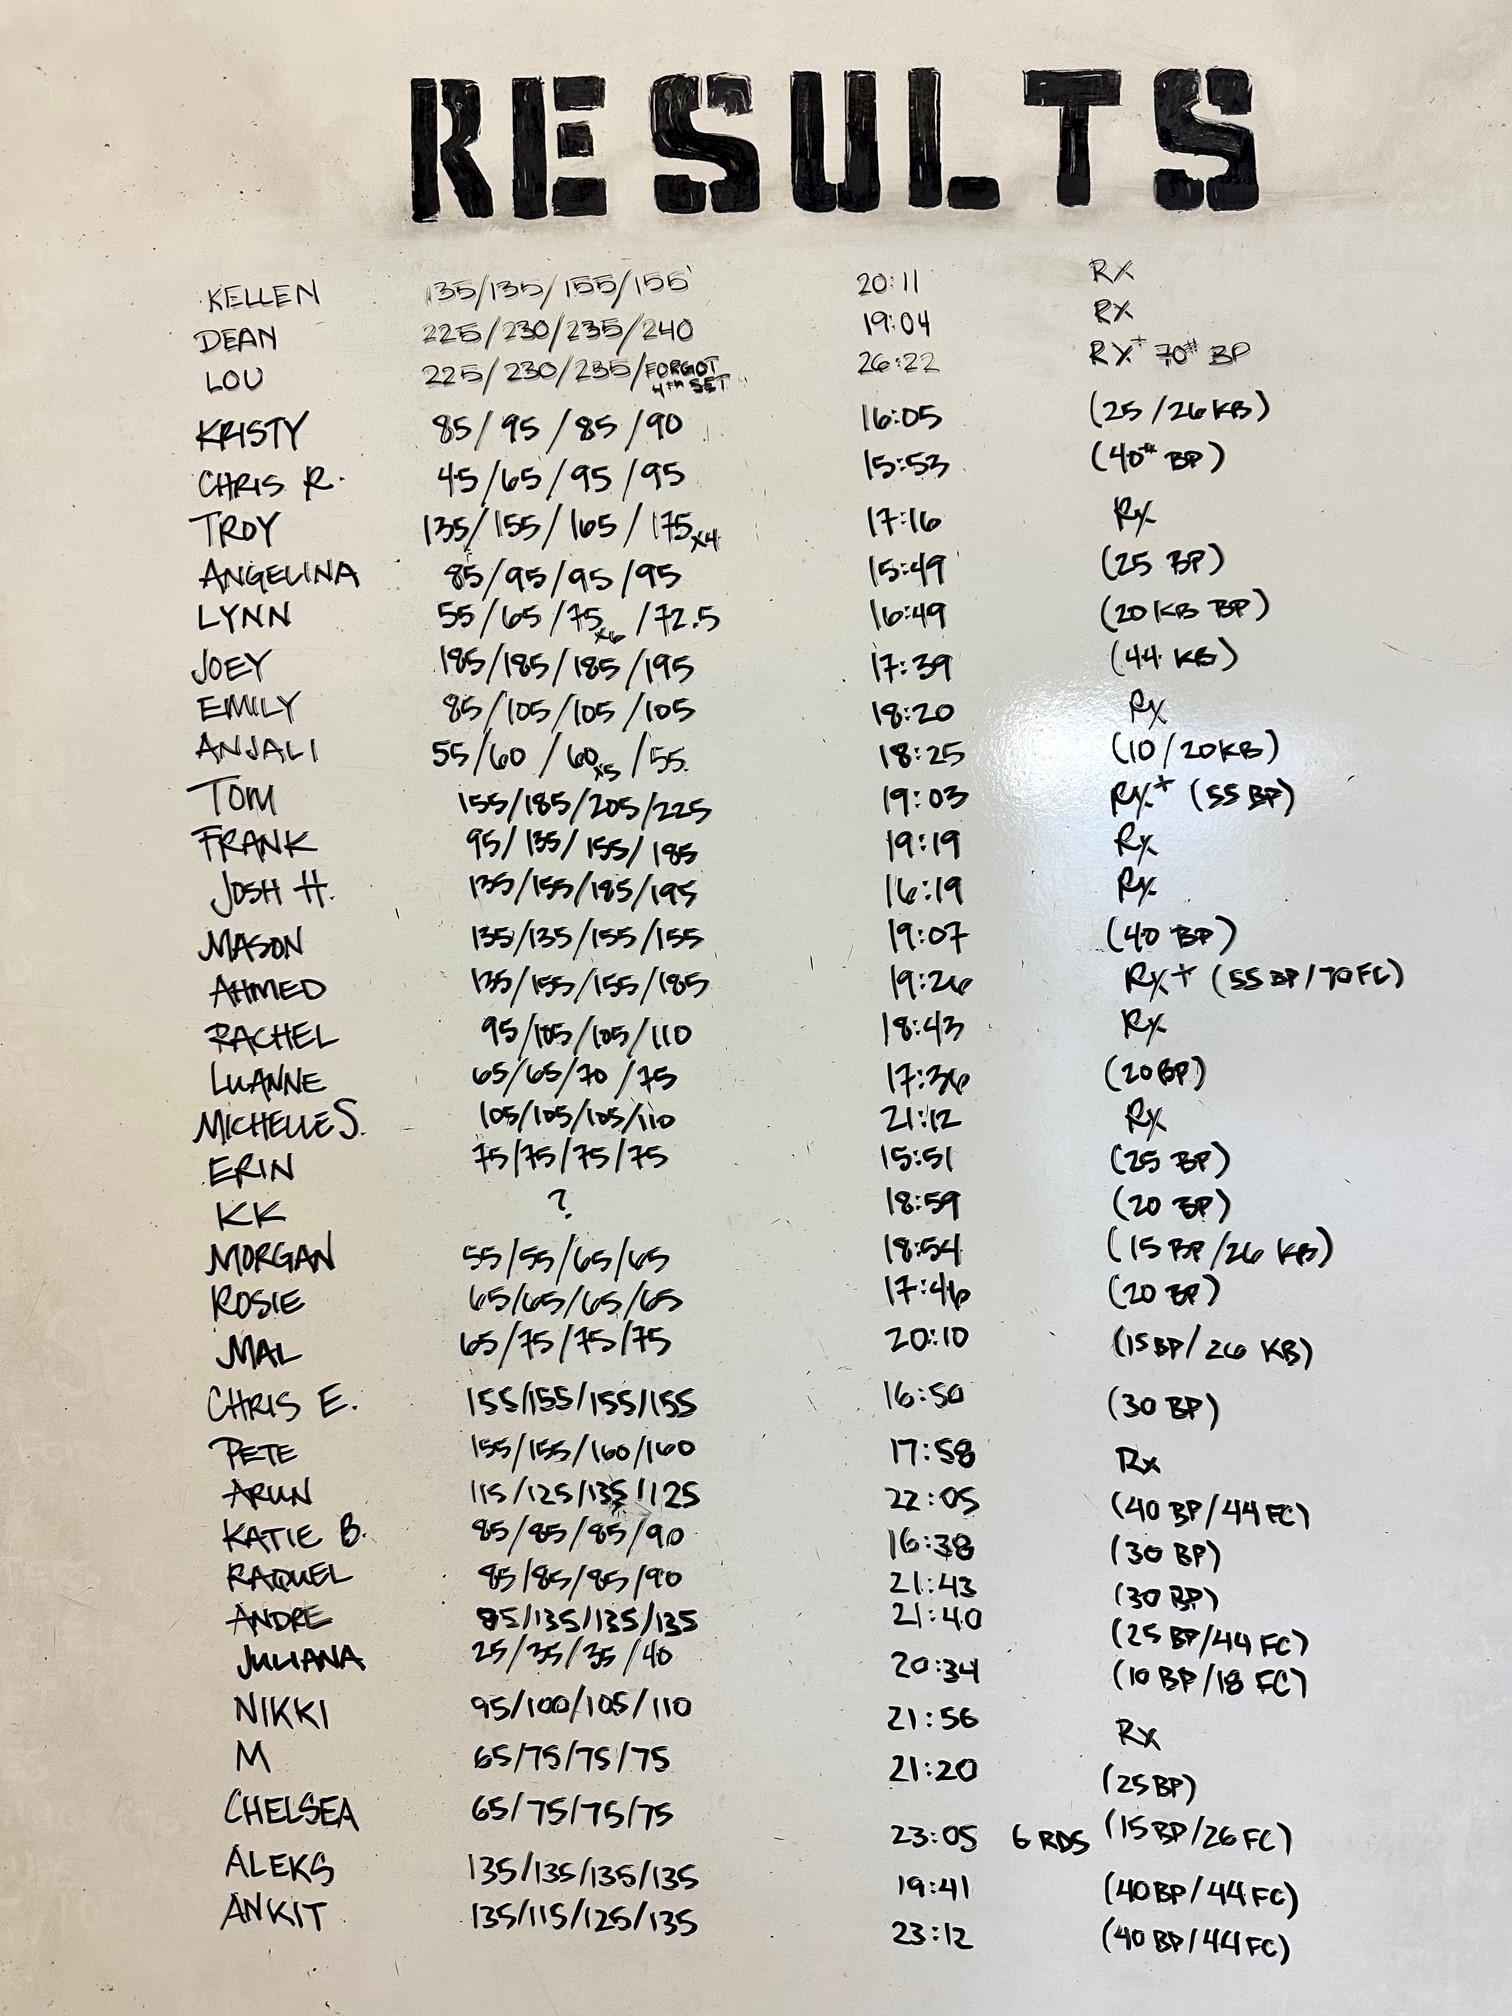 RESULTS
KELLEN 135/135/155/155 20:11 RX
DEAN 225/230/235/240 19:04 RX
LOU 225/230/235/FORGOT 4TH SET 26:22 RX+ 70# BP
KRISTY 85/95/85/90 16:05 (25/26KB)
CHRIS R. 45/65/95/95 15:53 (40# BP)
TROY 135/155/165/175x4 17:16 Rx
ANGELINA 85/95/95/95 15:49 (25 BP)
LYNN 55/65/75x6/72.5 16:49 (20KB BP)
JOEY 185/185/185/195 17:39 (44 KB)
EMILY 85/105/105/105 18:20 Rx
ANJALI 55/60/60x5/55 18:25 (10/20KB)
TOM 155/185/205/225 19:03 Rx+ (55 BP)
FRANK 95/135/155/185 19:19 Rx
JOSH H. 135/155/185/195 16:19 Rx
MASON 135/135/155/155 19:07 (40 BP)
AHMED 135/155/155/185 19:26 Rx+ (55 BP/70FC)
RACHEL 95/105/105/110 18:43 Rx
LUANNE 65/65/70/75 17:36 (20BP)
MICHELLE S. 105/105/105/110 21:12 Rx
ERIN 75/75/75/75 15:51 (25 BP)
KK ? 18:59 (20 BP)
MORGAN 55/55/65/65 18:54 (15 BP/26 KB)
ROSIE 65/65/65/65 17:46 (20 BP)
MAL 65/75/75/75 20:10 (15BP/26 KB)
CHRIS E. 155/155/155/155 16:50 (30 BP)
PETE 155/155/160/160 17:58 Rx
ARUN 115/125/135/125 22:05 (40 BP/44 FC)
KATIE B. 85/85/85/90 16:38 (30 BP)
RAQUEL 85/85/85/90 21:43 (30 BP)
ANDRE 85/135/135/135 21:40 (25 BP/44 FC)
JULIANA 25/35/35/40 20:34 (10 BP/18 FC)
NIKKI 95/100/105/110 21:56 Rx
M 65/75/75/75 21:20 (25BP)
CHELSEA 65/75/75/75 23:05 6 RDS (15BP/26FC)
ALEKS 135/135/135/135 19:41 (40BP/44FC)
ANKIT 135/115/125/135 23:12 (40BP/44FC)